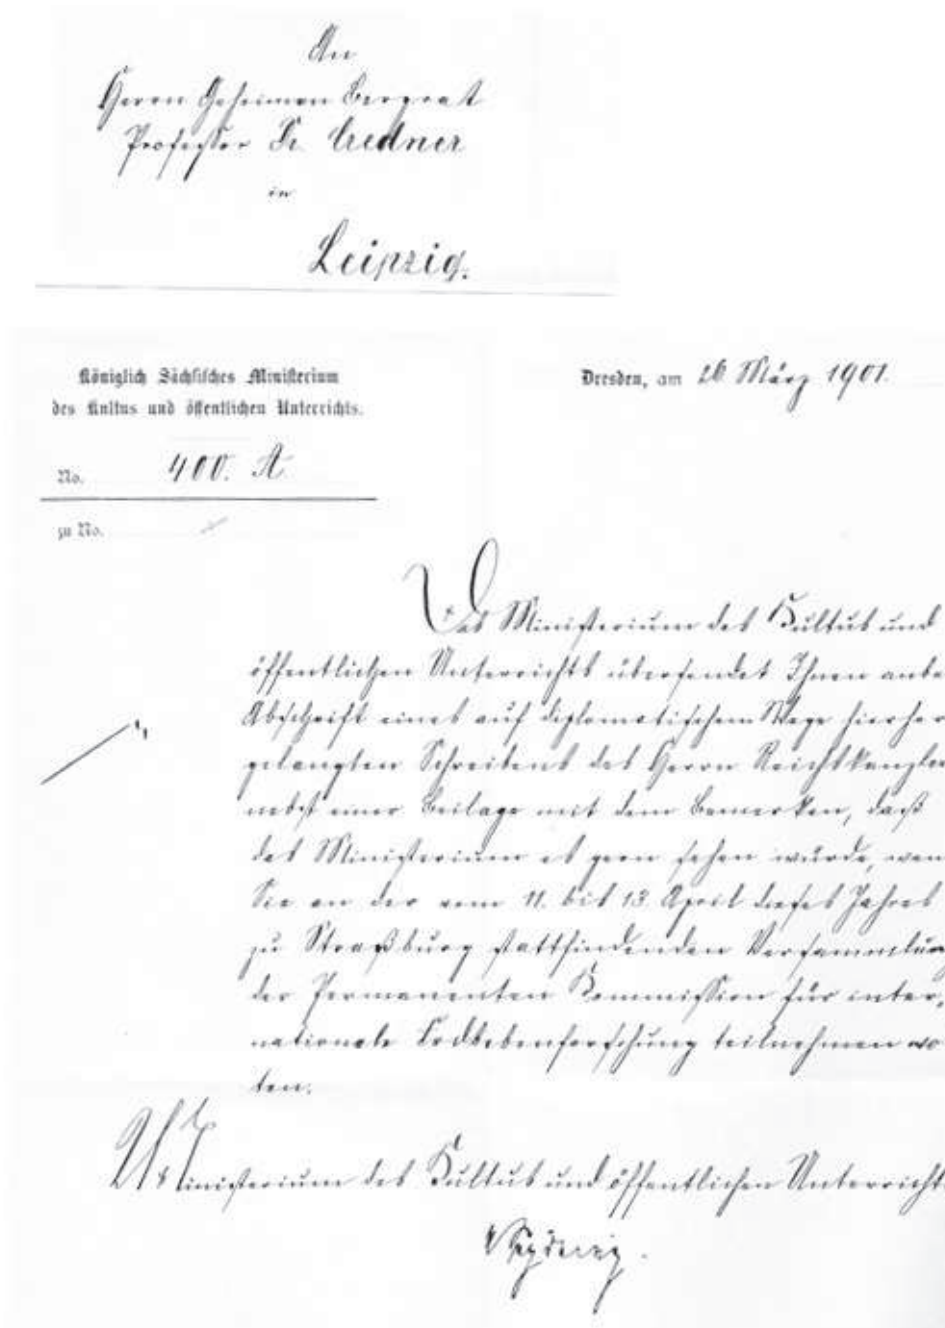 An
Herrn Geheimen Bergrat
Professor Dr. Credner
in
Leipzig.
Königlich Sächsisches Ministerium
des Kultus und öffentlichen Unterrichts.
Dresden, am 26. März 1901.
No. 400. A
zu No.
Das Ministerium des Kultus und
öffentlichen Unterrichts übersendet Ihnen anbe
Abschrift eines auf diplomatischem Wege hierher
gelangten Schreibens des Herrn Reichskanzler
nebst einer Beilage mit dem Bemerken, daß
das Ministerium es gern sehen würde, wen
Sie an der vom 11. bis 13. April dieses Jahres
zu Straßburg stattfindenden Versammlun
der Permanenten Kommission für inter-
nationale Erdbebenforschung teilnehmen wo
ten.
Ministerium des Kultus und öffentlichen Unterrichts
Seydewitz.